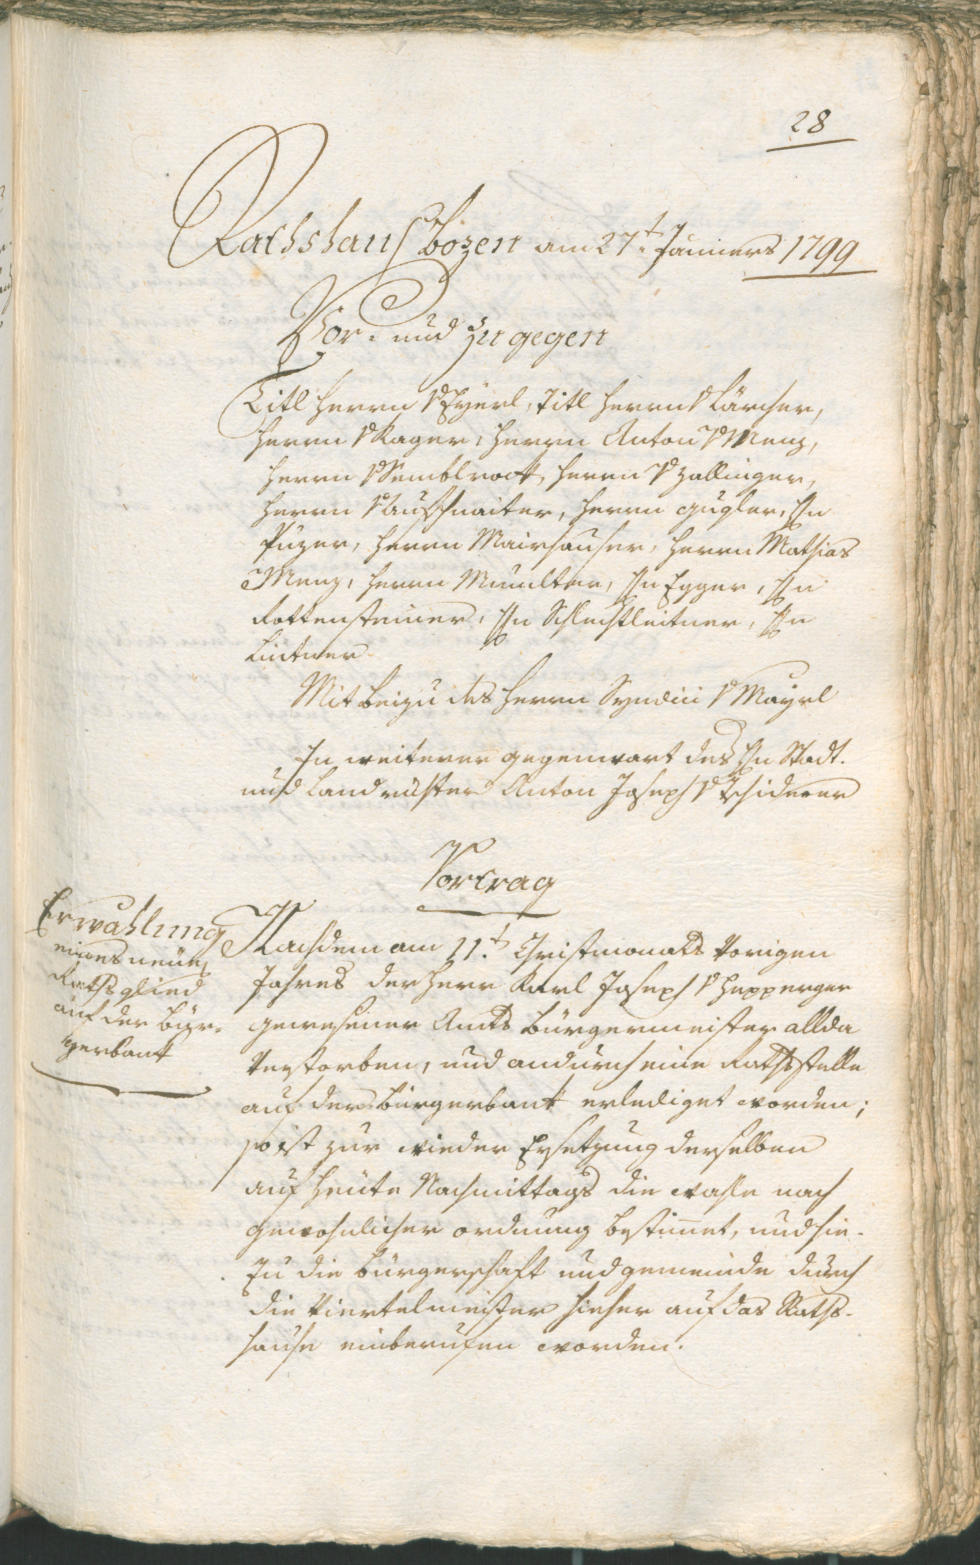 28
Rathshaus Bozen am 27t: Jänners 1799
Vor- und Zugegen
Titl Herrn v Eyerl, Titl Herrn v Lärcher,
Herrn v Kager, Herrn Anton v Menz,
Herrn v Remblrock, Herrn v Zallinger,
Herrn v Aufschnaiter, Herrn Gugler, Hn
Puzer, Herrn Mairhauser, Herrn Mathias
Menz, Herrn Mumlter, Hn Egger, Hn
Rottensteiner, Hn Schlechtleitner, Hn
Lintner.
Mit Beizu des Herrn Syndici v Mayrl
In weiterer Gegenwart des Hn Stadt-
und Landrichter Anton Joseph v Tschiderer
Vortrag
Erwählung
eines neuen
Rathsglied
auf der Bür-
gerbank
Nachdem am 11t. Christmonats vorigen
Jahres der Herr Karl Joseph v Hepperger
gewesener Amts Bürgermeister allda
verstorben, und andurch eine Rathsstelle
auf der Bürgerbank erlediget worden;
so ist zur wieder Ersetzung derselben
auf heute Nachmittags die Wahle nach
gewohnlicher Ordnung bestimet, und hie-
zu die Bürgerschaft und Gemeinde durch
die Viertelmeister hieher auf das Raths-
hause einberufen worden.